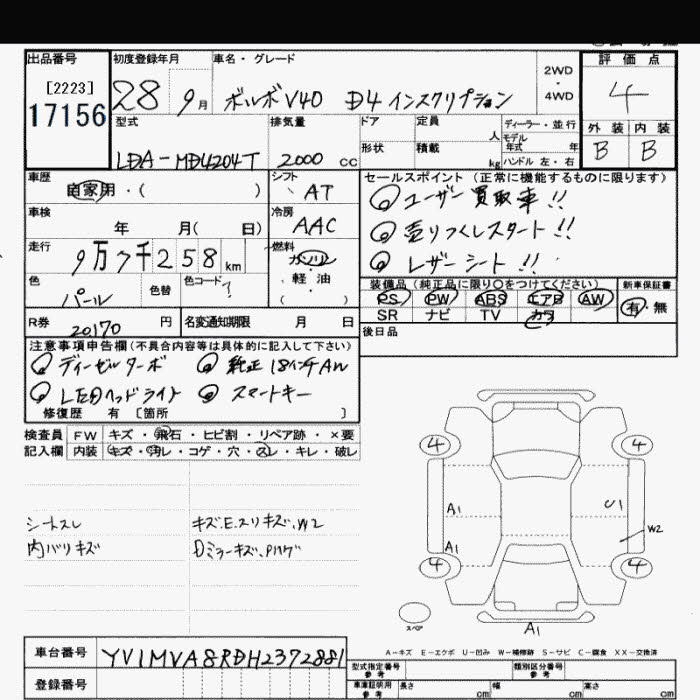 出品番号
[2223]
17156
初度登録年月
28 9月
車名・グレード
ボルボV40 D4 インスクリプション
2WD
4WD
評価点
4
外装 内装
B B
型式
LDA-MD4204T
排気量
2000 cc
ドア
形状
定員 人
積載 kg
ディーラー・並行
モデル年式 年
ハンドル 左・右
車歴
自家用・( )
シフト
AT
車検
年 月( 日)
冷房
AAC
走行
9万7千258km
燃料
ガソリン
軽油
( )
色
パール
色替
色コード
?
R券
20170円
名変通知期限 月 日
セールスポイント (正常に機能するものに限ります)
ユーザー買取車!!
売りつくしスタート!!
レザーシート!!
装備品 (純正品に限り○をつけてください)
新車保証書
PS PW ABS エアB AW
SR ナビ TV カワ
有・無
後日品
注意事項申告欄(不具合内容等は具体的に記入して下さい)
ディーゼルターボ 純正18インチAW
LEDヘッドライト スマートキー
修復歴 有 [箇所 ]
検査員
記入欄
FW キズ・飛石・ヒビ割・リペア跡・×要
内装 キズ・汚れ・コゲ・穴・スレ・キレ・破レ
シートスレ
内バリキズ
キズ.E.スリキズ.W2
Dミラーキズ.
4 4
A1 U1
W2
A1
4 4
スペア
A1
A-キズ E-エクボ U-凹み W-補修跡 S-サビ C-腐食 XX-交換済
車台番号
YV1MVA8RDH2372881
登録番号
型式指定番号
参考
類別区分番号
参考
車庫証明用
参考
長さ cm
幅 cm
高さ cm